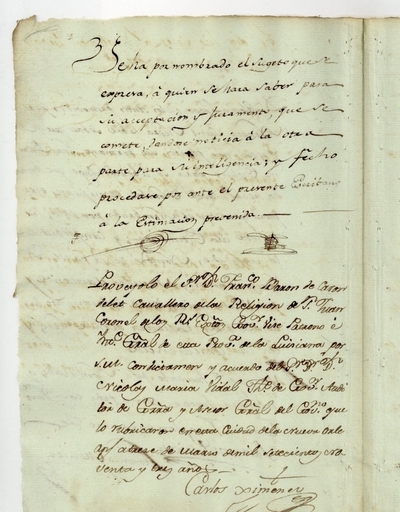 Se ha por nombrado el Sugeto que se
expresa, à quien se hara saber para
su aceptacion y Juramento, que se
comete, dandose noticia à la otra
parte para su inteligencia; y fecho
procedase por ante el presente Escribano
à la Estimacion prevenida.
Proveyolo el S.ʳ D.ⁿ Fran.ᶜᵒ Baron de Caron
delet Cavallero de la Religion de S.ⁿ Juan
Coronel de los R.ˢ Exᵗᵒˢ Gov.ᵒʳ Vice Patrono e
Yn.ᵗᵉ Gr̃al de esta Prov.ᵃ de la Luisiana por
S.M. con dictamen y acuerdo del S.ʳ D.ⁿ
Nicolas Maria Vidal Th.ᵉ de Gov.ᵒʳ Audi
tor de Guerra y Asesor Gr̃al del Gov.ⁿᵒ que
lo rubricaron en esta Ciudad de la Nueva Orle
de Marzo de mil setecientos, no
venta y tres años
Carlos Ximenez